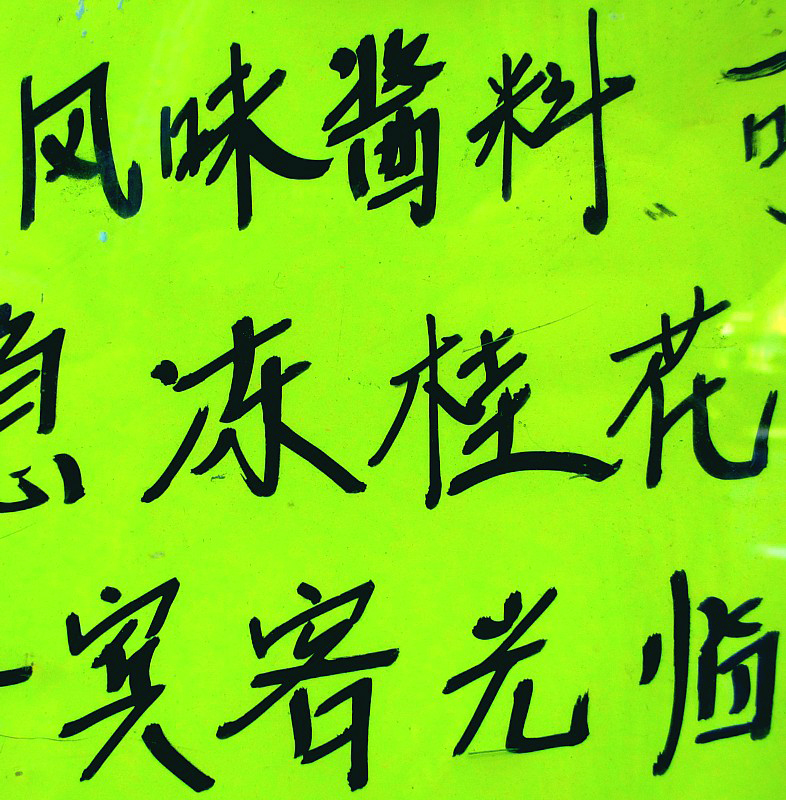 风味酱料、
急冻桂花
宾客光临